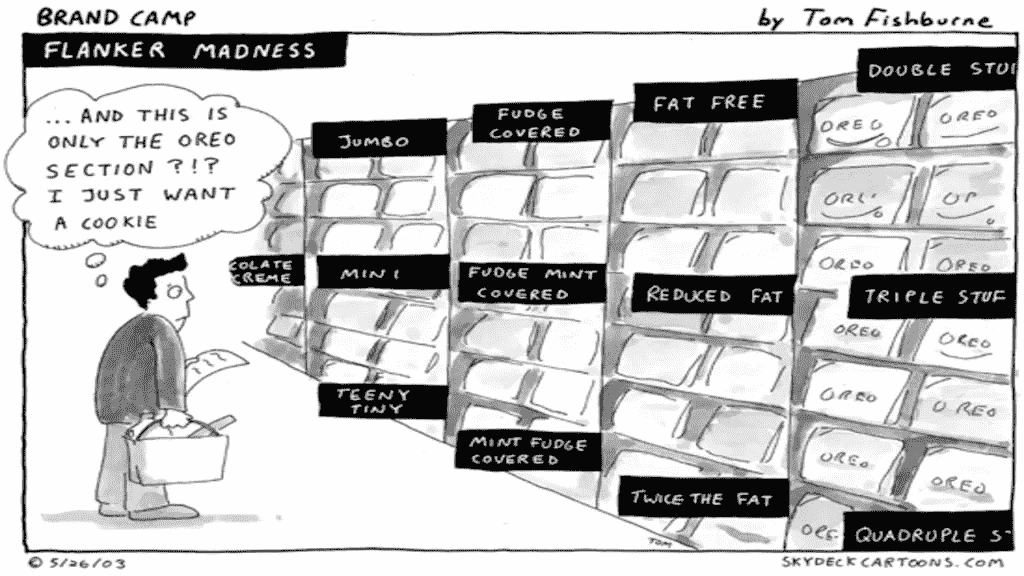 BRAND CAMP
by Tom Fishburne
FLANKER MADNESS
... AND THIS IS
ONLY THE OREO
SECTION ?!?
I JUST WANT
A COOKIE
COLATE
CREME
JUMBO
MINI
TEENY
TINY
FUDGE
COVERED
FUDGE MINT
COVERED
MINT FUDGE
COVERED
FAT FREE
REDUCED FAT
TWICE THE FAT
DOUBLE STU
OREO OREO
OREO OREO
TRIPLE STUF
OREO OREO
OREO OREO
OREO OREO
QUADRUPLE S
TOM
© 5/26/03
SKYDECKCARTOONS.COM